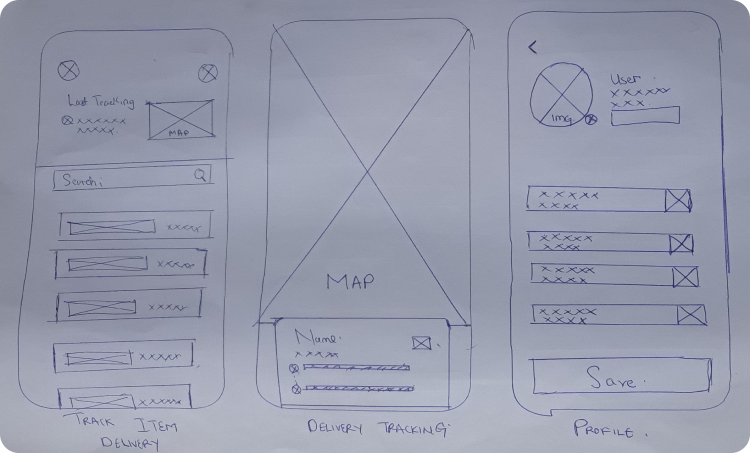 Last Tracking
xxxxxx
xxxxx.
MAP
Search;
xxxxx
xxxxx
xxxxx
xxxxx
xxxxx
TRACK ITEM
DELIVERY
MAP
Name.
xxxxx
DELIVERY TRACKING
<
User.
xxxxxx
xxx
Img
xxxxx
xxxx
xxxxx
xxxx
xxxxx
xxxx
xxxxx
xxxx
Save.
PROFILE.